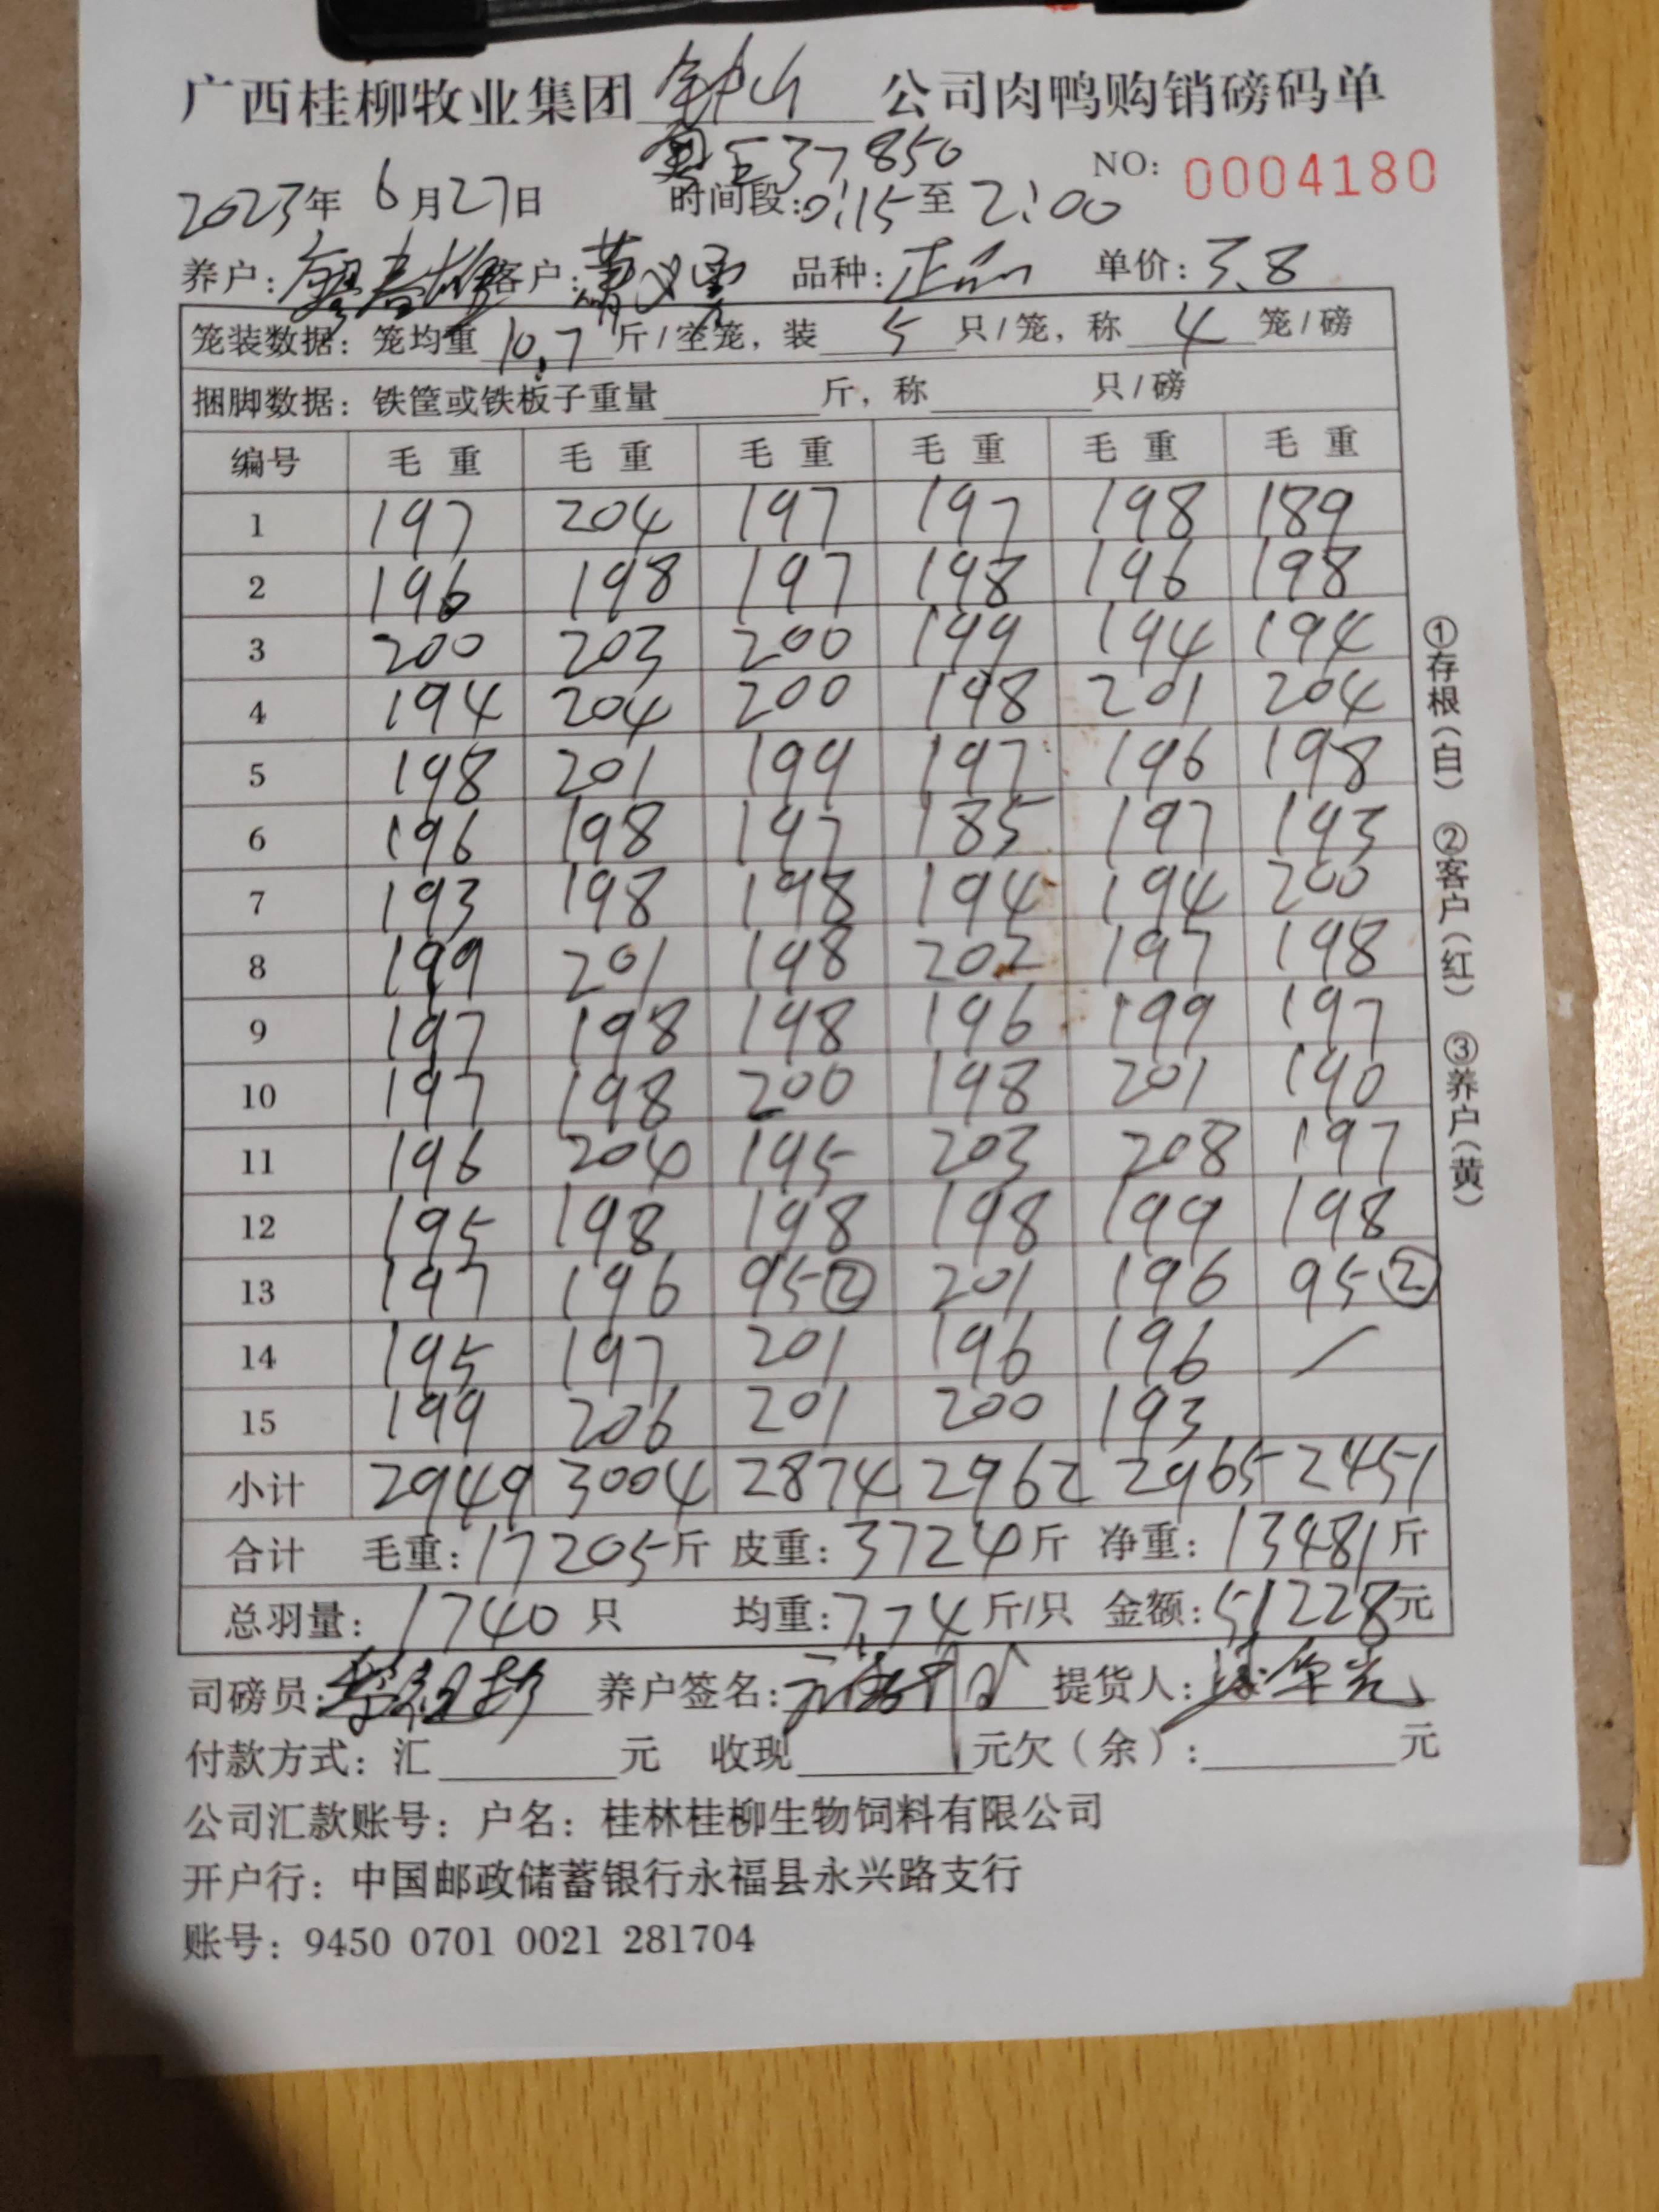 广西桂柳牧业集团钟山公司肉鸭购销磅码单
37850
NO: 0004180
2023年6月27日 时间段:0:15至2:00
养户: 客户: 品种:正品 单价:3.8
笼装数据: 笼均重10.7斤/空笼, 装5只/笼, 称4笼/磅
捆脚数据: 铁筐或铁板子重量 斤, 称 只/磅
编号 毛重 毛重 毛重 毛重 毛重 毛重
1 197 204 197 197 198 189
2 196 198 197 198 196 198
3 200 203 200 199 194 194
4 194 204 200 198 201 204
5 198 201 199 197 196 198
6 196 198 197 185 197 193
7 193 198 198 194 194 200
8 199 201 198 202 197 198
9 197 198 198 196 199 197
10 197 198 200 198 201 190
11 196 204 195 203 208 197
12 195 198 198 198 199 198
13 197 196 95② 201 196 95②
14 195 197 201 196 196 /
15 199 206 201 200 193
小计 2949 3004 2874 2962 2965 2451
合计 毛重:17205斤 皮重:3724斤 净重:13481斤
总羽量:1740只 均重:7.74斤/只 金额:51228元
司磅员: 养户签名: 提货人:
付款方式: 汇 元 收现 元欠(余): 元
公司汇款账号: 户名: 桂林桂柳生物饲料有限公司
开户行: 中国邮政储蓄银行永福县永兴路支行
账号: 9450 0701 0021 281704
①存根(白) ②客户(红) ③养户(黄)